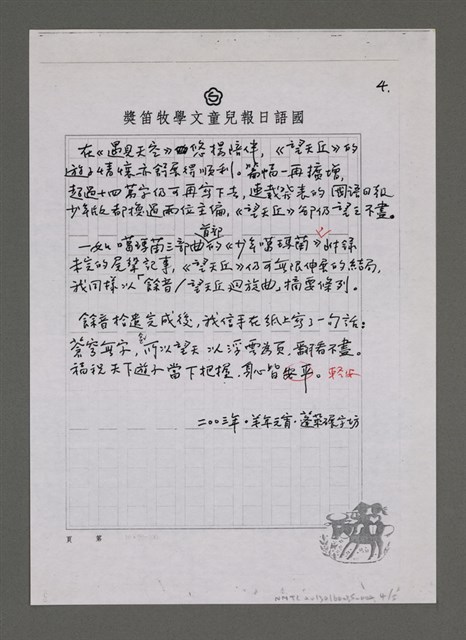 4.
獎笛牧學文童兒報日語國
在《遇見天空》悠揚陪伴,《望天丘》的
遊子情懷亦舒柔得順利。篇幅一再擴增,
超過十四萬字仍可再寫下去,連載發表的國語日報
少年版都換過兩位主編,《望天丘》卻仍望之不盡。
首部
一如噶瑪蘭三部曲的《少年噶瑪蘭》附錄
未完的尾聲記事,《望天丘》仍可無限伸展的結局,
我同樣以「餘音/望天丘迴旋曲」摘要條列。
餘音拾遺完成後,我信手在紙上寫了一句話:
蒼穹無字,可以望天以浮雲為頁,翻看不盡。
福祝天下遊子當下把握,身心皆安平。輕安
二〇〇三年·羊年元宵·蓬萊碾字坊
頁 第